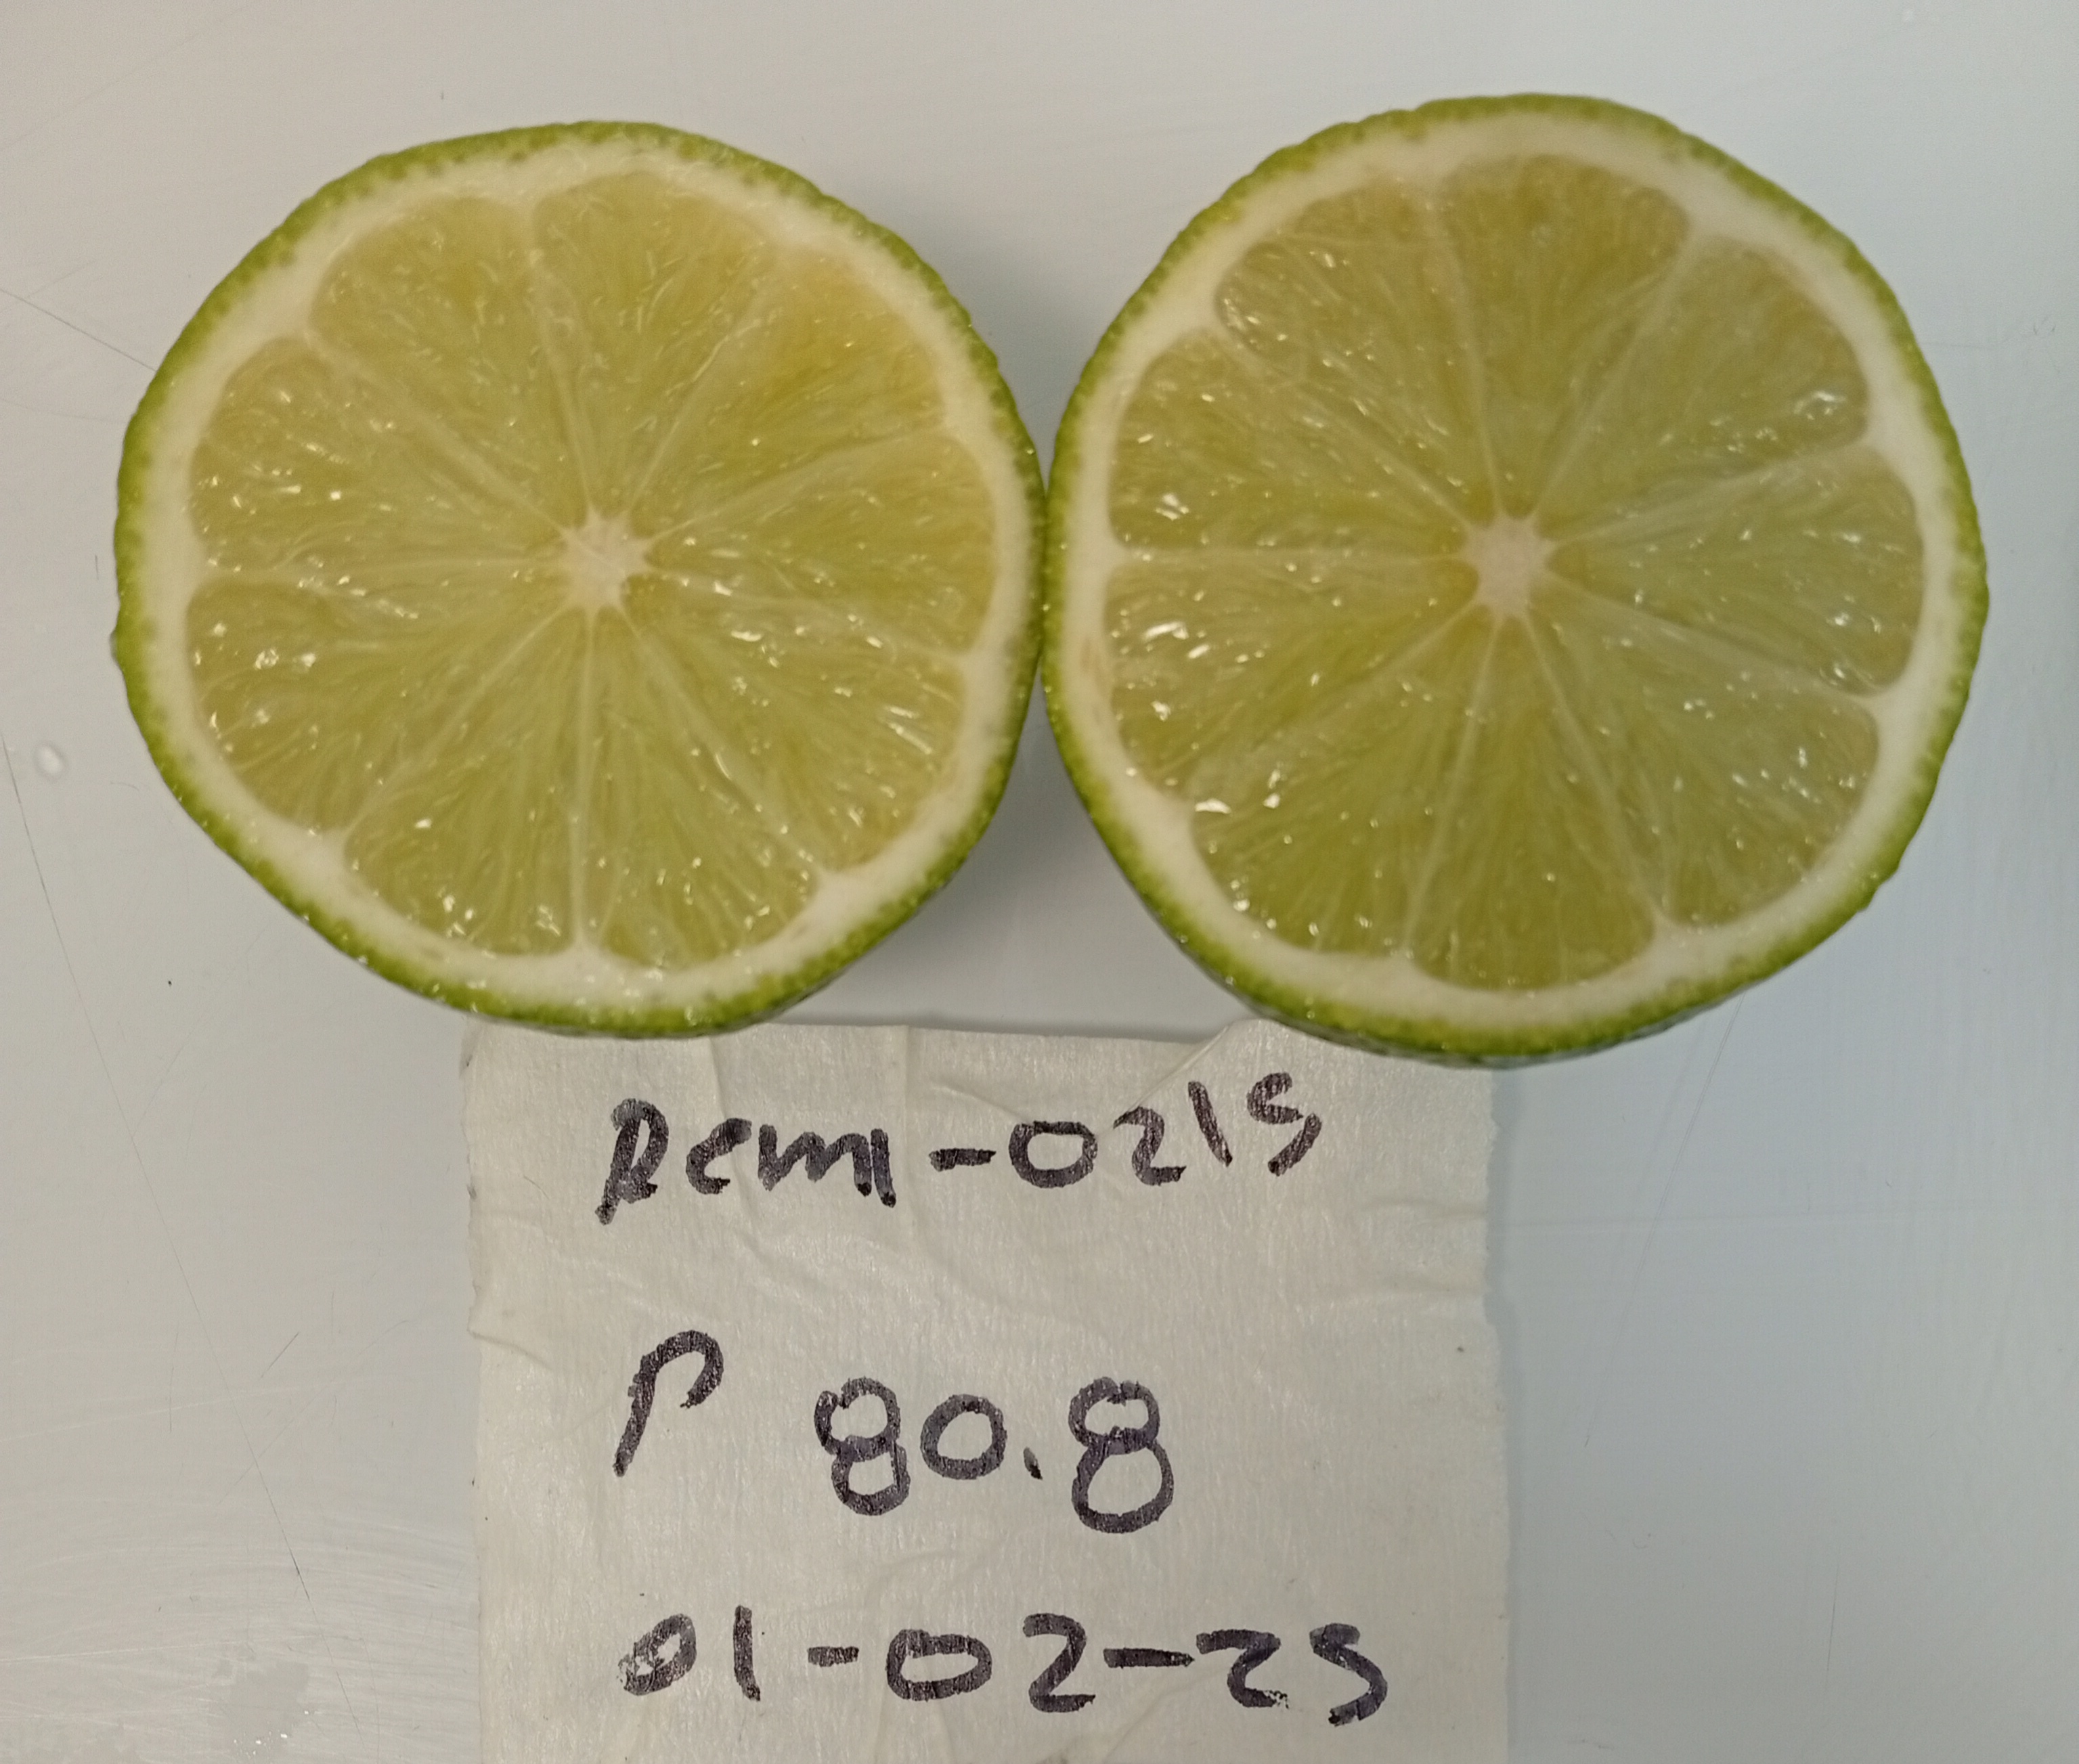 Remi-0215
P 80.8
01-02-25